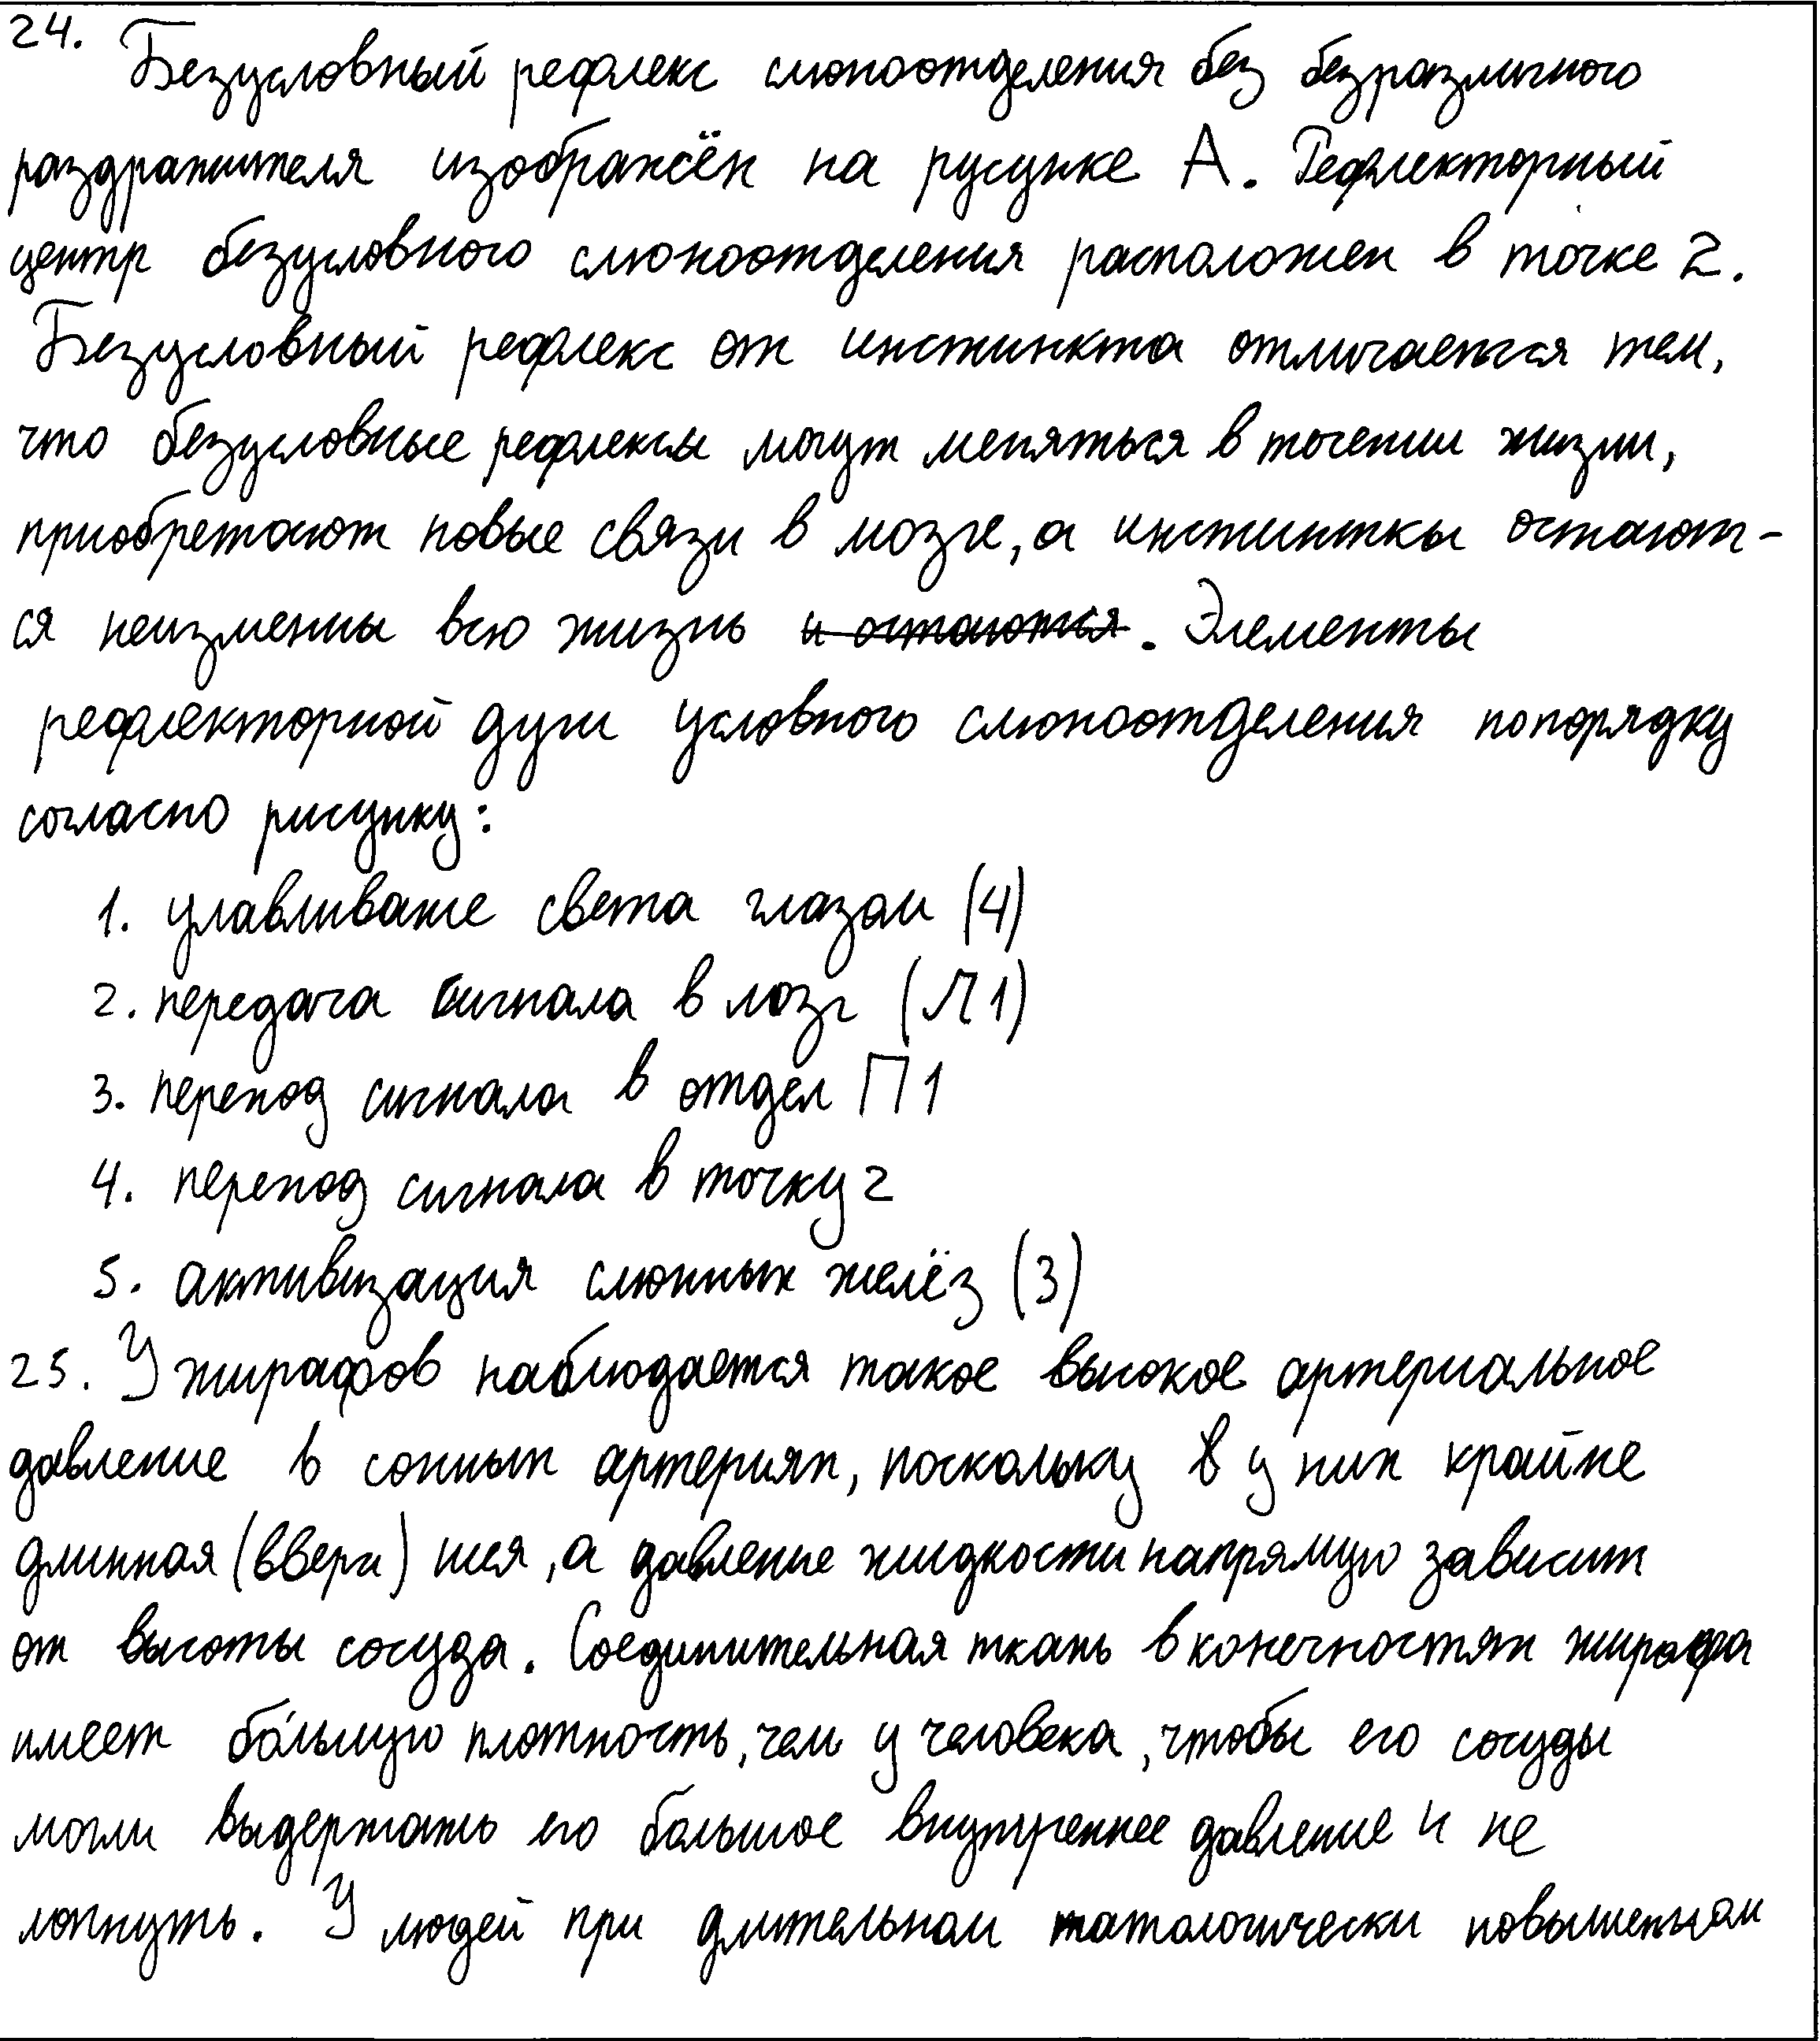 24. Безусловный рефлекс слюноотделения без безразличного
раздражителя изображён на русунке А. Рефлекторный
центр безусловного слюноотделения расположен в точке 2.
Безусловный рефлекс от инстинкта отличается тем,
что безусловные рефлексы могут меняться в течении жизни,
приобретают новые связи в мозге, а инстинткы остают-
ся неизменны всю жизнь и остаются. Элементы
рефлекторной дуги условного слюноотделения по порядку
согласно рисунку:
1. улавливание света глазом (4)
2. передача сигнала в мозг (Л1)
3. переход сигнала в отдел П1
4. переход сигнала в точку 2
5. активизация слюнных желёз (3)
25. У жирафов наблюдается такое высокое артериальное
давление в сонных артериях, поскольку в у них крайне
длинная (вверх) шея, а давление жидкости напрямую зависит
от высоты сосуда. Соединительная ткань в конечностях жирафа
имеет бо́льшую плотность, чем у человека, чтобы его сосуды
могли выдержать его большое внутреннее давление и не
лопнуть. У людей при длительном патологически повышенном